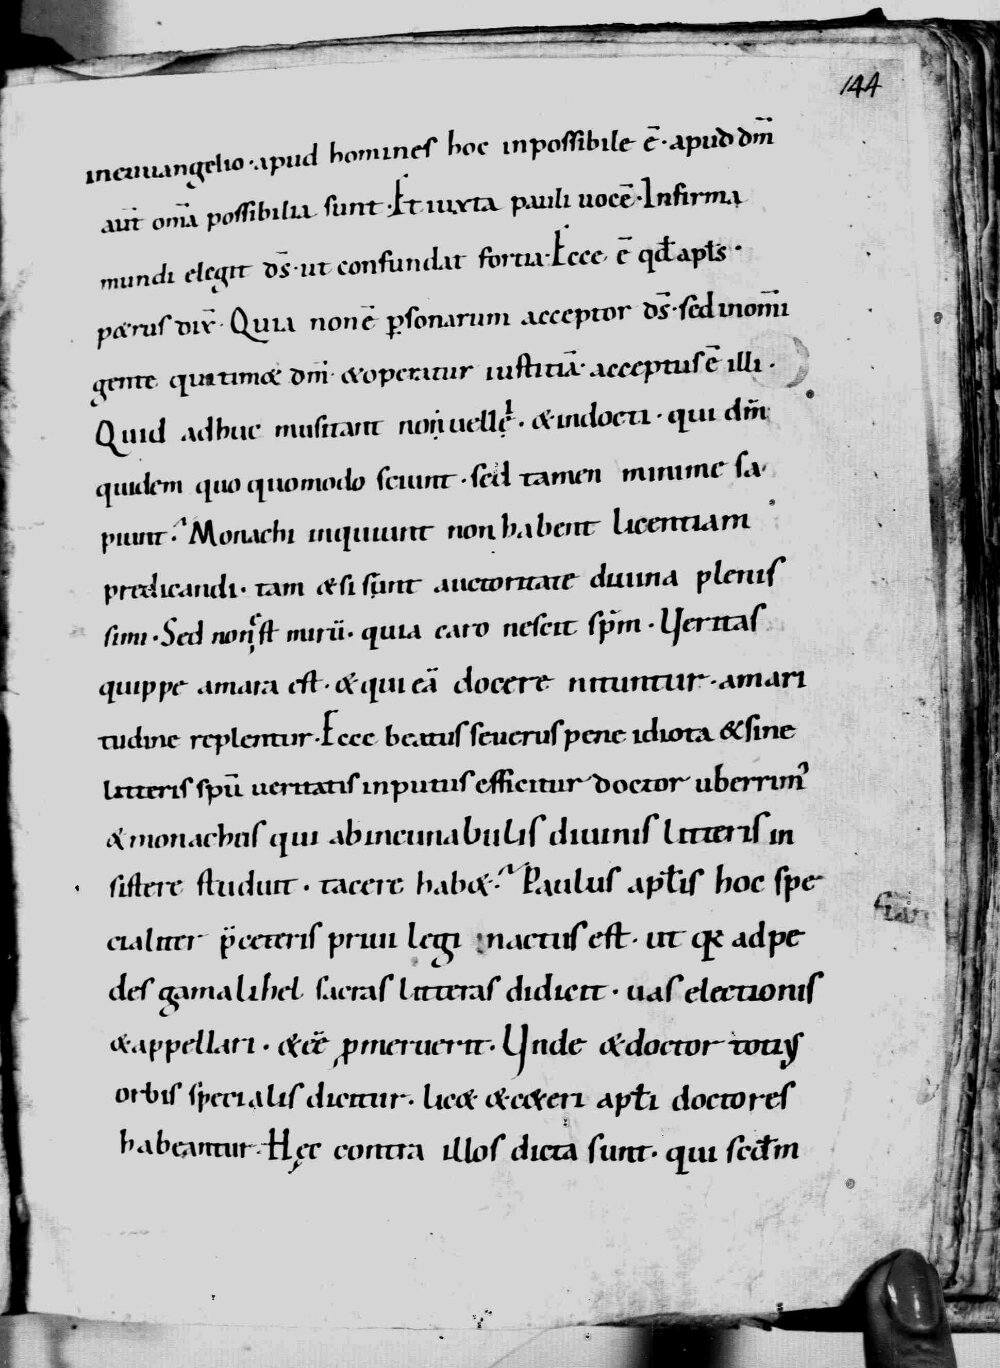 144
ineuuangelio · apud homines hoc inpossibile ē · apud dm̄
aut̄ om̄a possibilia sunt · Et iuxta pauli uocē · Infirma
mundi elegit ds̄ · ut confundat fortia · Ecce ē qđ apłs ·
petrus dix̄ · Quia non ē ꝑsonarum acceptor ds̄ · sed inom̄i
gente qui timet dm̄ · &operatur iustitiā · acceptus ē illi ·
Quid adhuc musitant &indocti · qui dm̄
quidem quo quomodo sciunt · sed tamen minime sa
piunt · Monachi inquiunt non habent licentiam
predicandi · tam &si sunt auctoritate diuina plenis
simi · Sed non ęst mirū · quia caro nescit sp̄m · Ueritas
quippe amara est · &qui eā docere nituntur · amari
tudine replentur · Ecce beatus seuerus pene idiota &sine
litteris spū ueritatis inputus efficitur doctor uberrim᾿
&monachus qui abincunabulis diuinis litteris in
sistere studuit · tacere hab& · Paulus apłis hoc spe
cialiter p̄ceteris priui legi nactus est · ut qꝛ adpe
des gamalihel sacras litteras didicit · uas electionis
&appellari · &eē ꝓmeruerit · Unde &doctor totiꝰ
orbis specialis dicitur · lic& &c&eri apłi doctores
habeantur · Hęc contra illos dicta sunt · qui secđm